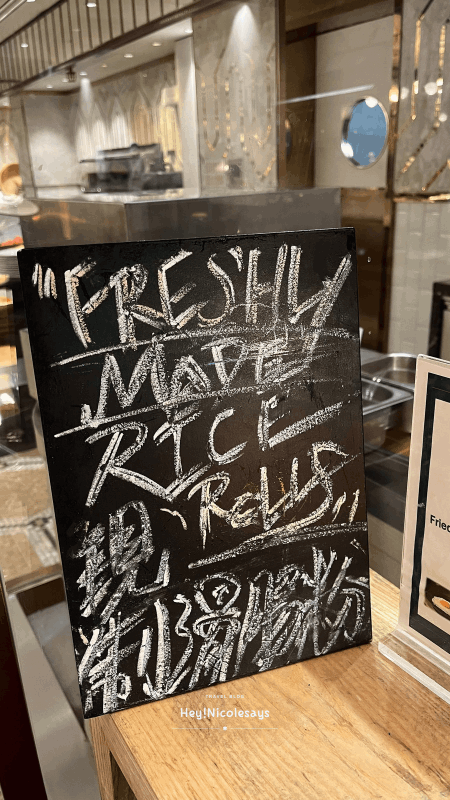 "FRESHLY
MADE
RICE
RELLS"
現
制滑腸粉
Fried
TRAVEL BLOG
Hey!Nicolesays